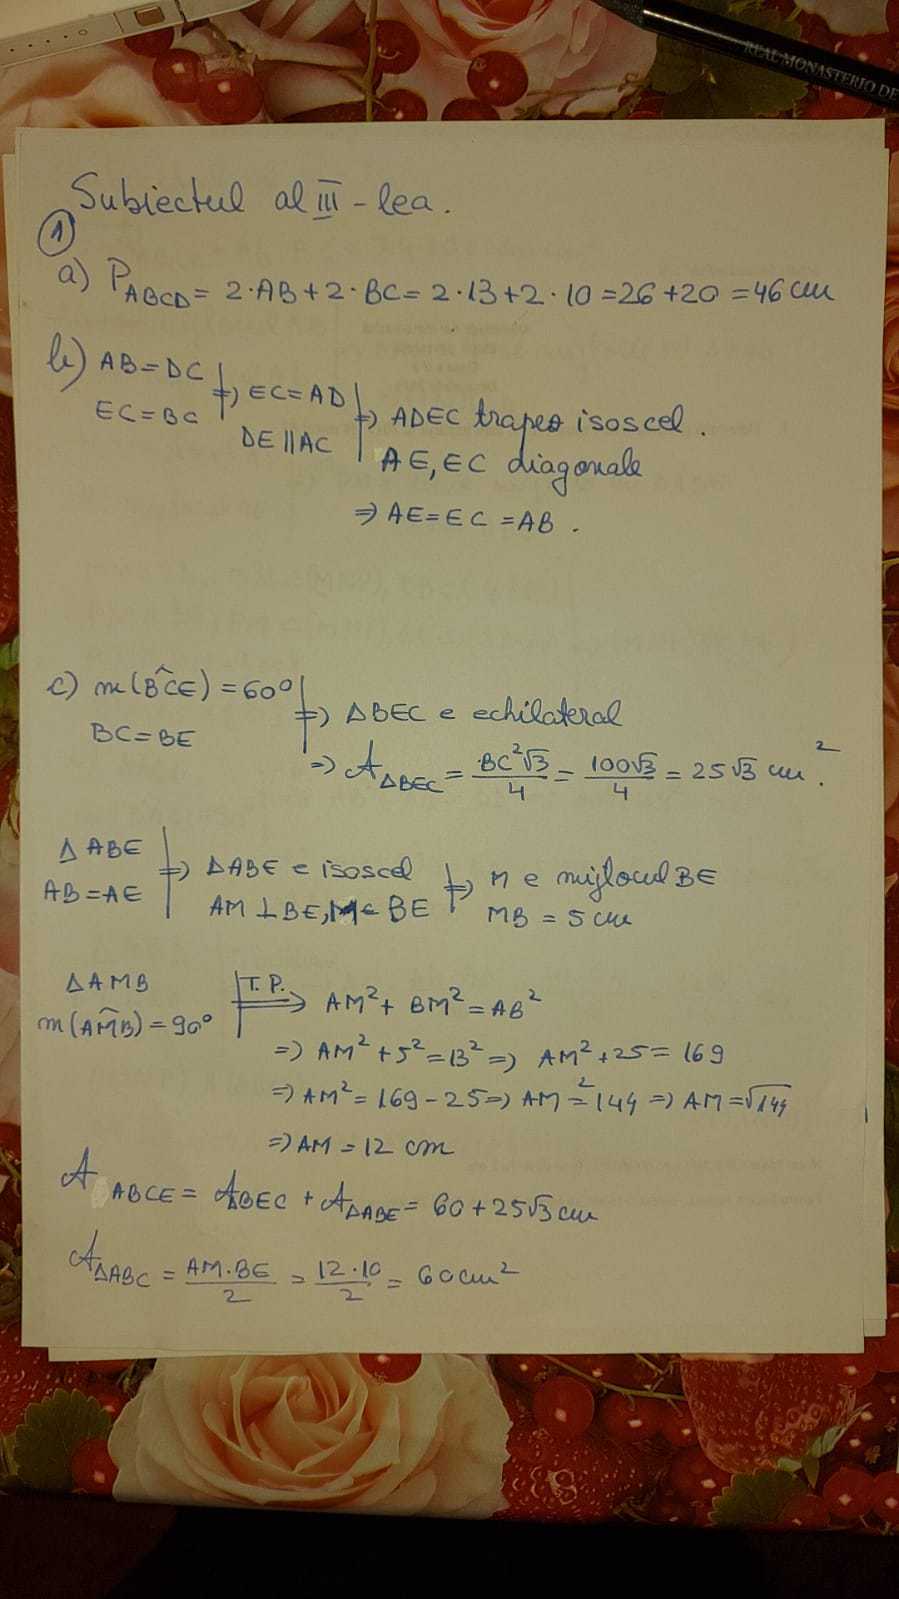 REAL MONASTERIO DE
Subiectul al III-lea.
1
a) P ABCD = 2·AB+2·BC= 2·13+2·10=26+20=46 cm
b) AB=DC
EC=BC
⇒ EC=AD
DE∥AC
⇒ ADEC trapez isoscel.
AE, EC diagonale
⇒ AE=EC=AB.
c) m(BĈE)=60°
BC=BE
⇒ ΔBEC e echilateral
⇒ A ΔBEC = BC²√3/4 = 100√3/4 = 25√3 cm².
Δ ABE
AB=AE
⇒ ΔABE e isoscel
AM⊥BE, M∈BE
⇒ M e mijlocul BE
MB = 5 cm
ΔAMB
m(AM̂B)=90°
T.P. ⇒ AM²+BM²=AB²
⇒ AM²+5²=13² ⇒ AM²+25=169
⇒ AM²=169-25 ⇒ AM²=144 ⇒ AM=√144
⇒ AM=12 cm
A ABCE = A ΔBEC + A ΔABE = 60+25√3 cm
A ΔABC = AM·BE/2 = 12·10/2 = 60cm²